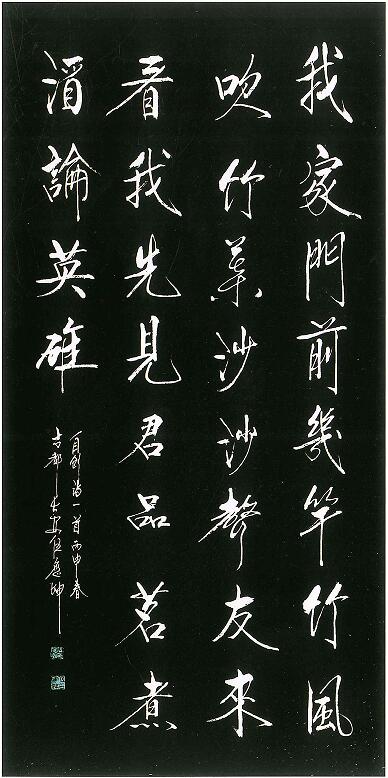 我家門前幾竿竹風
吹竹葉沙沙聲友來
看我先見君品茗煮
酒論英雄
自創詩一首丙申春
古都長安任應坤